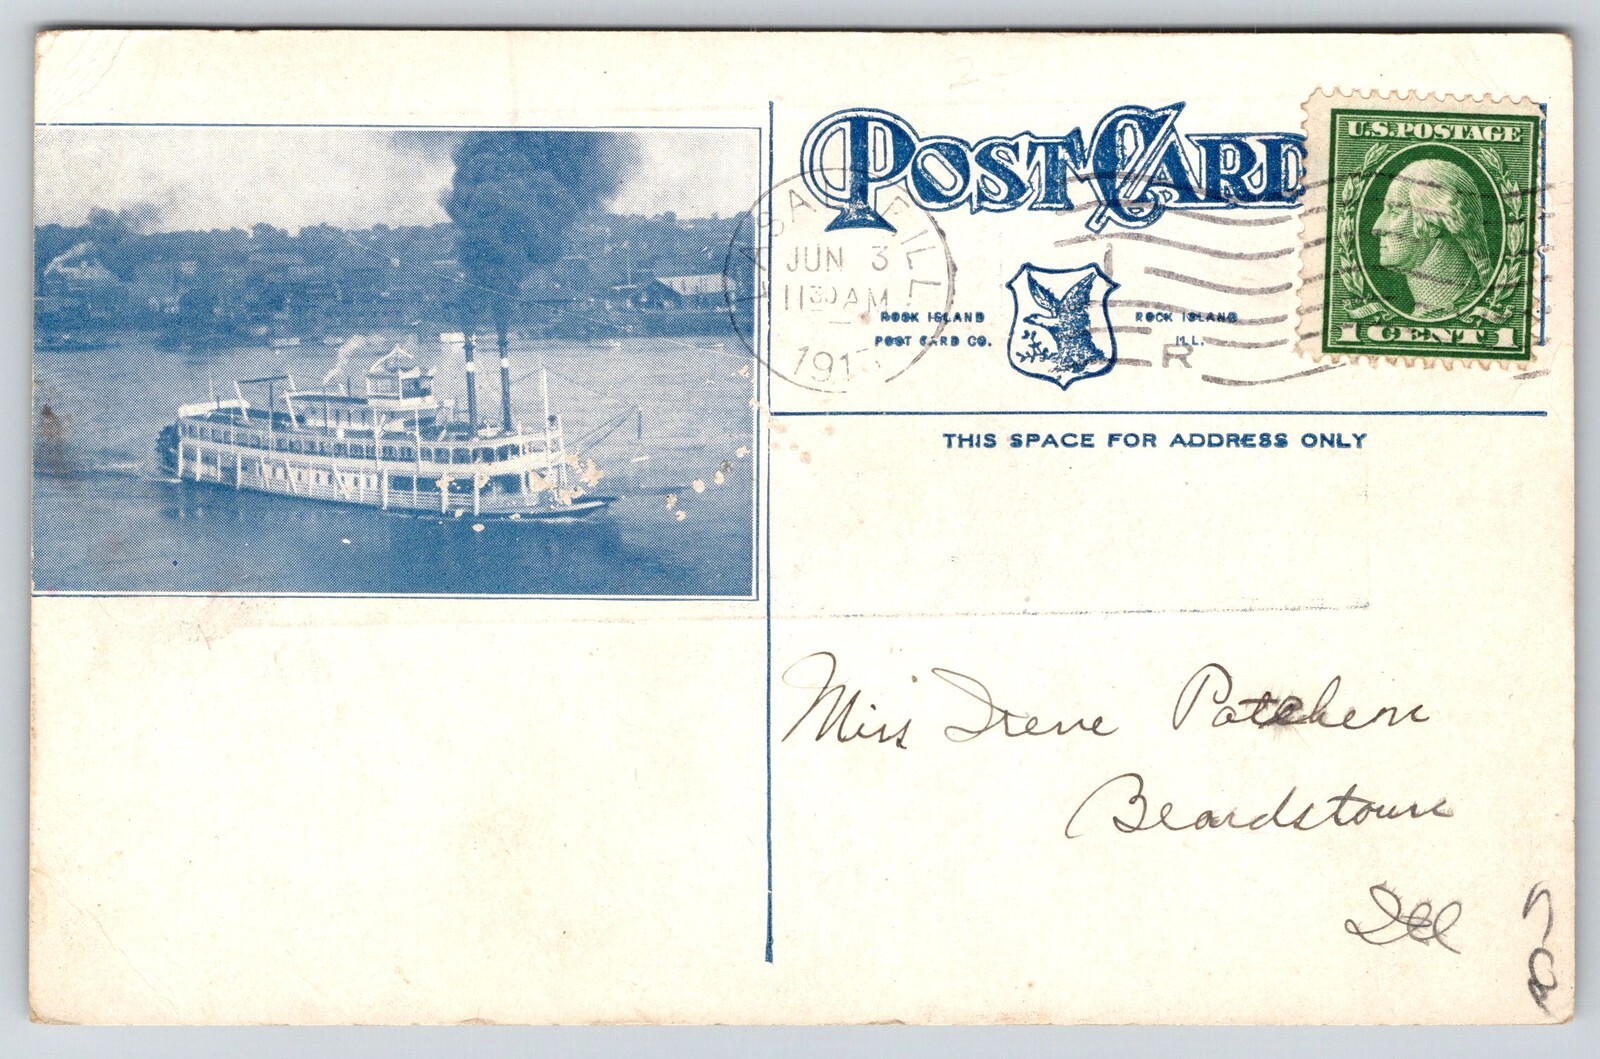 POST CARD
U.S. POSTAGE
1 CENT 1
LASALLE ILL.
JUN 3
11 30 AM
ROCK ISLAND
POST CARD CO.
ROCK ISLAND
ILL.
R
THIS SPACE FOR ADDRESS ONLY
Miss Irene Patchen
Beardstown
Ill